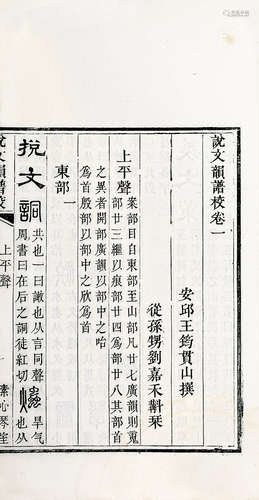 說文韻譜校卷一
安邱王筠貫山撰
從孫甥劉嘉禾斠栞
上平聲
案部目自東至山部凡廿七廣韻則䰟
部廿三繼以痕部廿四爲部廿八其部首
之異者開部廣韻以部中之咍
爲首殷部以部中之欣爲首
東部一
挩文詷
共也一曰譀也从言同聲
周書曰在后之詷徒紅切
旱气
也从
說文韻譜校
上平聲
素心琴室